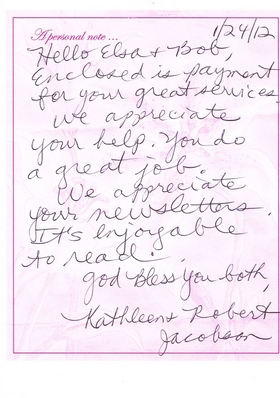 A personal note ...
1/24/12
Hello Elsa & Bob,
Enclosed is payment
for your great services
We appreciate
your help. You do
a great job.
We appreciate
your newsletters.
It's enjoyable
to read.
God Bless you both,
Kathleen & Robert
Jacobson